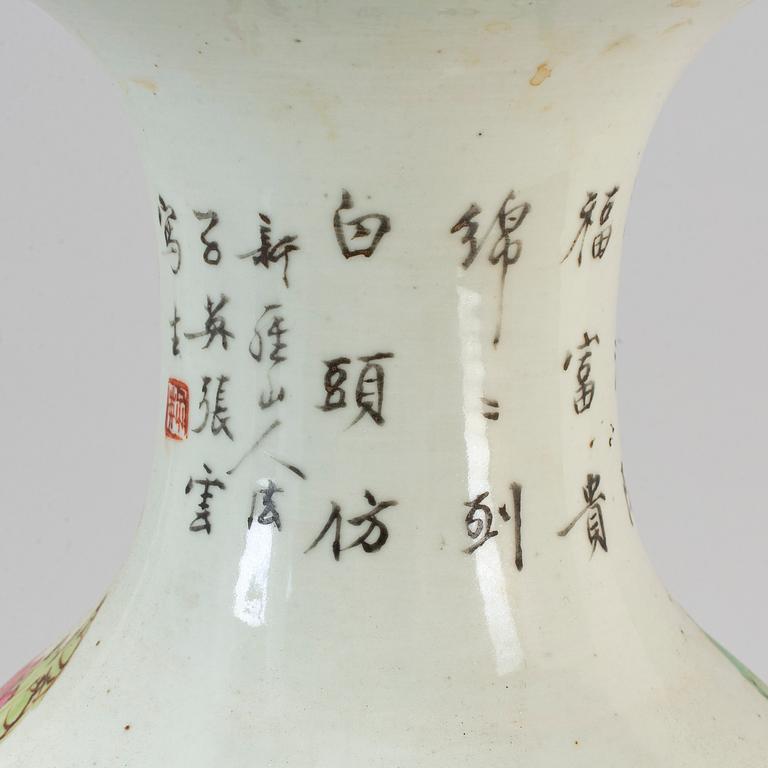 福富貴
綿〻到
白頭仿
新羅山人法
子英張雲
寫生